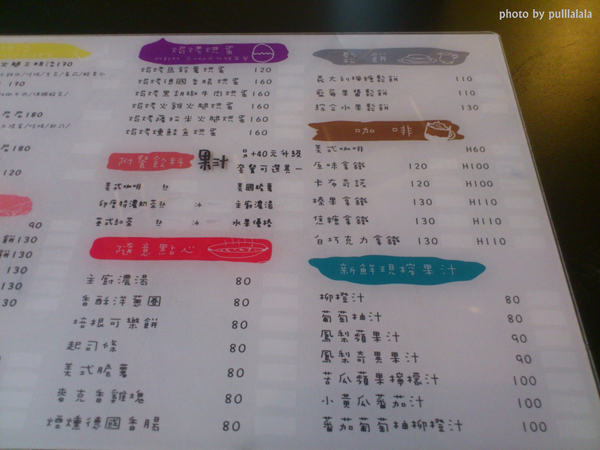 photo by pulllalala
火腿三明治170
170
180
180
90
130
130
130
130
焗烤烘蛋
焗烤馬鈴薯烘蛋 120
焗烤德國香腸烘蛋 160
焗烤黑胡椒牛肉烘蛋 160
焗烤火雞火腿烘蛋 160
焗烤薩拉米火腿烘蛋 160
焗烤燻鮭魚烘蛋 160
附餐飲料 果汁 +40元升級
套餐可選其一
美式咖啡 熱 美國脆薯
印度特濃奶茶 熱 冰 主廚濃湯
英式紅茶 熱 冰 水果優格
隨意點心
主廚濃湯 80
香酥洋蔥圈 80
培根可樂餅 80
起司條 80
美式脆薯 80
麥克香雞塊 80
煙燻德國香腸 80
鬆餅
義大利檸檬鬆餅 110
藍莓果醬鬆餅 110
綜合水果鬆餅 130
咖啡
美式咖啡 H60
原味拿鐵 120 H100
卡布奇諾 120 H100
榛果拿鐵 130 H110
焦糖拿鐵 130 H110
白巧克力拿鐵 130 H110
新鮮現榨果汁
柳橙汁 80
葡萄柚汁 80
鳳梨蘋果汁 90
鳳梨奇異果汁 90
苦瓜蘋果檸檬汁 100
小黃瓜蕃茄汁 100
蕃茄葡萄柚柳橙汁 100